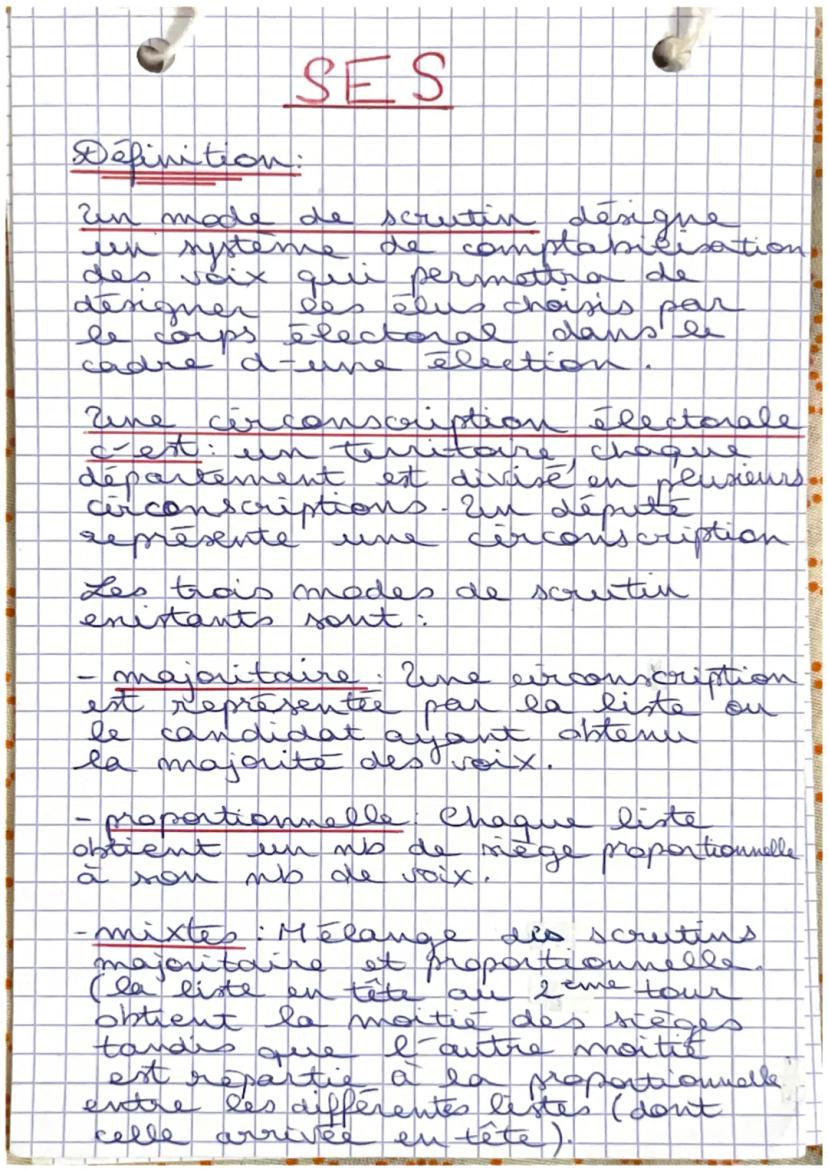 SES
Définition:
Un mode de scrutin désigne
un système de comptabilisation
des voix qui permettra de
désigner les élus choisis par
le corps électoral dans le
cadre d'une élection.
Une circonscription électorale
c'est : un territoire, chaque
département est divisé en plusieurs
circonscriptions. Un député
représente une circonscription
Les trois modes de scrutin
existants sont :
- majoritaire : Une circonscription
est représentée par la liste ou
le candidat ayant obtenu
la majorité des voix.
- proportionnelle : Chaque liste
obtient un nb de siège proportionnelle
à son nb de voix.
- mixtes : Mélange des scrutins
majoritaire et proportionnelle.
(la liste en tête au 2ème tour
obtient la moitié des sièges
tandis que l'autre moitié
est répartie à la proportionnelle
entre les différentes listes (dont
celle arrivée en tête).